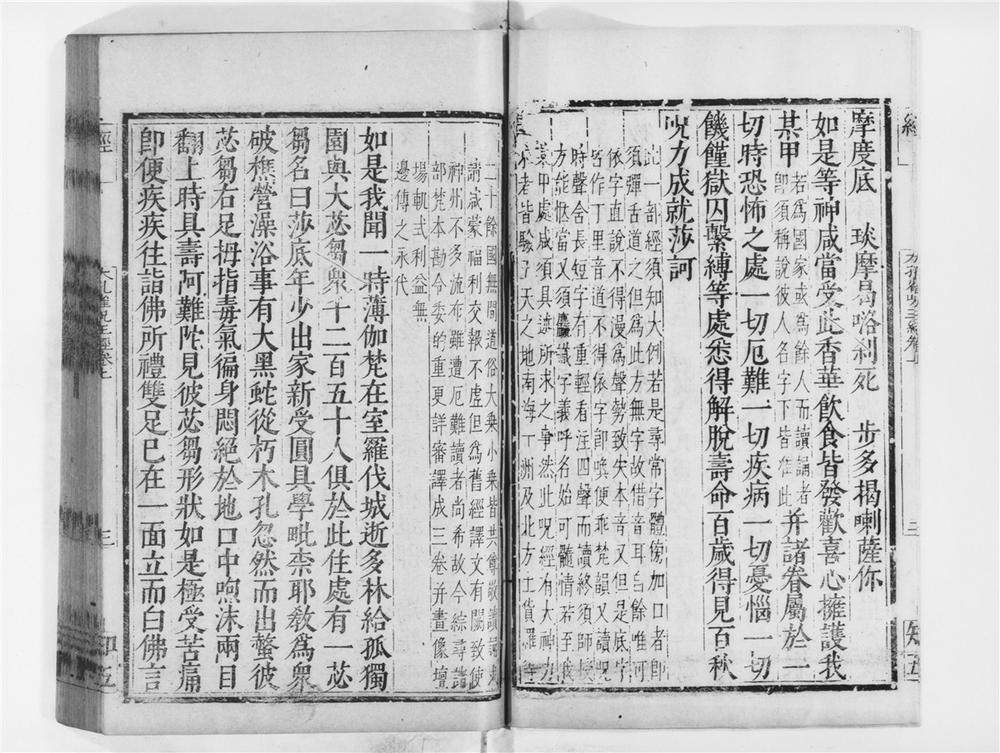 經
大孔雀呪王經卷上
三
知五
摩度底 琰摩曷咯剎死 步多揭喇薩你
如是等神咸當受此香華飲食皆發歡喜心擁護我
某甲若為國家或為餘人而讀誦者即須稱說彼人名字下皆准此并諸眷屬於一
切時恐怖之處一切厄難一切疾病一切憂惱一切
饑饉獄囚繫縛等處悉得解脫壽命百歲得見百秋
呪力成就莎訶
此一部經須知大例若是尋常字體傍加口者即
須彈舌道之但為此方無字故借音耳自餘唯可
依字直說不得漫為聲勢致失本音又但是底字
皆作丁里音道不得依字即喚便乖梵韻又讀呪
時聲含長短字有重輕看注四聲而讀終須師授
方能愜當又須識字義呼名始可隨情若至我
某甲處咸須具述所求之事然此呪經有大神力
求者皆驗五天之地南海十洲及北方土貨羅等
二十餘國無問道俗大乘小乘皆共尊敬讀誦求
請咸蒙福利交報不虛但為舊經譯文有闕致使
神州不多流布雖遭厄難讀者尚希故今綜尋諸
部梵本勘會委的重更詳審譯成三卷并畫像壇
場軌式利益無
邊傳之永代
如是我聞一時薄伽梵在室羅伐城逝多林給孤獨
園與大苾芻眾千二百五十人俱於此住處有一苾
芻名曰莎底年少出家新受圓具學毗柰耶教為眾
破樵營澡浴事有大黑蛇從朽木孔忽然而出螫彼
苾芻右足拇指毒氣徧身悶絕於地口中吐沫兩目
翻上時具壽阿難陀見彼苾芻形狀如是極受苦痛
即便疾疾往詣佛所禮雙足已在一面立而白佛言
經
大孔雀呪王經卷上
三
知五